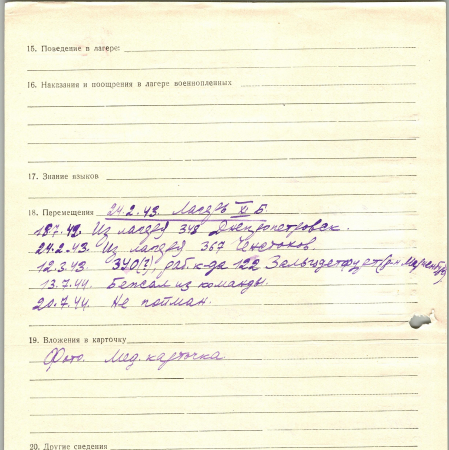 15. Поведение в лагере:
16. Наказания и поощрения в лагере военнопленных
17. Знание языков
18. Перемещения 24.2.43. Лагерь XI Б
Из лагеря 348 Днепропетровск.
24.2.43. Из лагеря 367 Ченстохов.
12.3.43. ЗУО(?), раб. к-да 122
13.7.44. Бежал из команды.
20.7.44. Не пойман.
19. Вложения в карточку
Фото. Мед. карточка.
20. Другие сведения